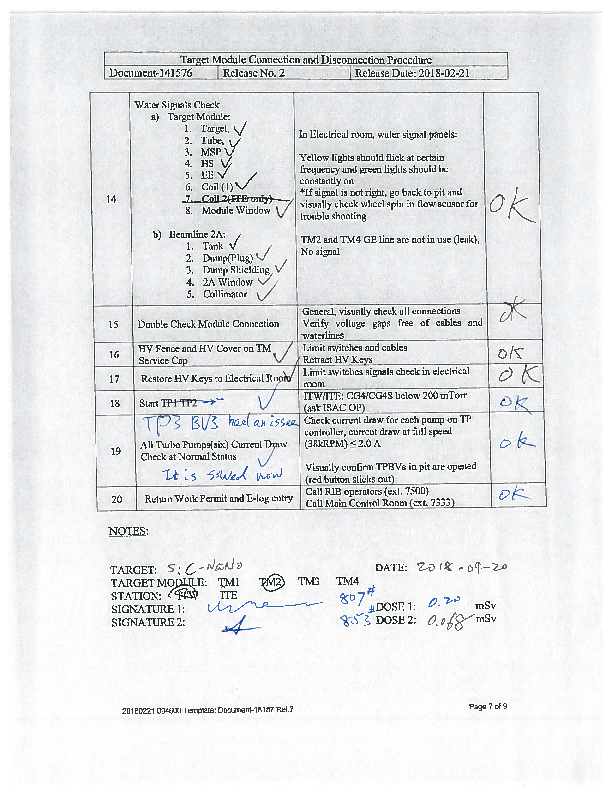 Target Module Connection and Disconnection Procedure
Document-141576 Release No. 2 Release Date: 2018-02-21
14
Water Signals Check
a) Target Module:
1. Target,
2. Tube,
3. MSP
4. HS
5. EE
6. Coil (1)
7. Coil 2(ITE only)
8. Module Window
b) Beamline 2A:
1. Tank
2. Dump(Plug)
3. Dump Shielding
4. 2A Window
5. Collimator
In Electrical room, water signal panels:
Yellow lights should flick at certain
frequency and green lights should be
constantly on
*If signal is not right, go back to pit and
visually check wheel spin in flow sensor for
trouble shooting
TM2 and TM4 GE line are not in use (leak),
No signal
OK
15
Double Check Module Connection
General, visually check all connections
Verify voltage gaps free of cables and
waterlines
OK
16
HV Fence and HV Cover on TM
Service Cap
Limit switches and cables
Retract HV Keys
OK
17
Restore HV Keys to Electrical Room
Limit switches signals check in electrical
room
OK
18
Start TP1 TP2
ITW/ITE: CG4/CG4S below 200 mTorr
(ask ISAC OP)
OK
19
TP3 BV3 had an issue
All Turbo Pumps(six) Current Draw
Check at Normal Status
It is solved now
Check current draw for each pump on TP
controller, current draw at full speed
(38kRPM) ≤ 2.0 A
Visually confirm TPBVs in pit are opened
(red button sticks out)
OK
20
Return Work Permit and E-log entry
Call RIB operators (ext. 7500)
Call Main Control Room (ext. 7333)
OK
NOTES:
TARGET: SiC-NANO DATE: 2018-09-20
TARGET MODULE: TM1 TM2 TM3 TM4
STATION: ITE
SIGNATURE 1: 807# DOSE 1: 0.20 mSv
SIGNATURE 2: #853 DOSE 2: 0.068 mSv
Page 7 of 9